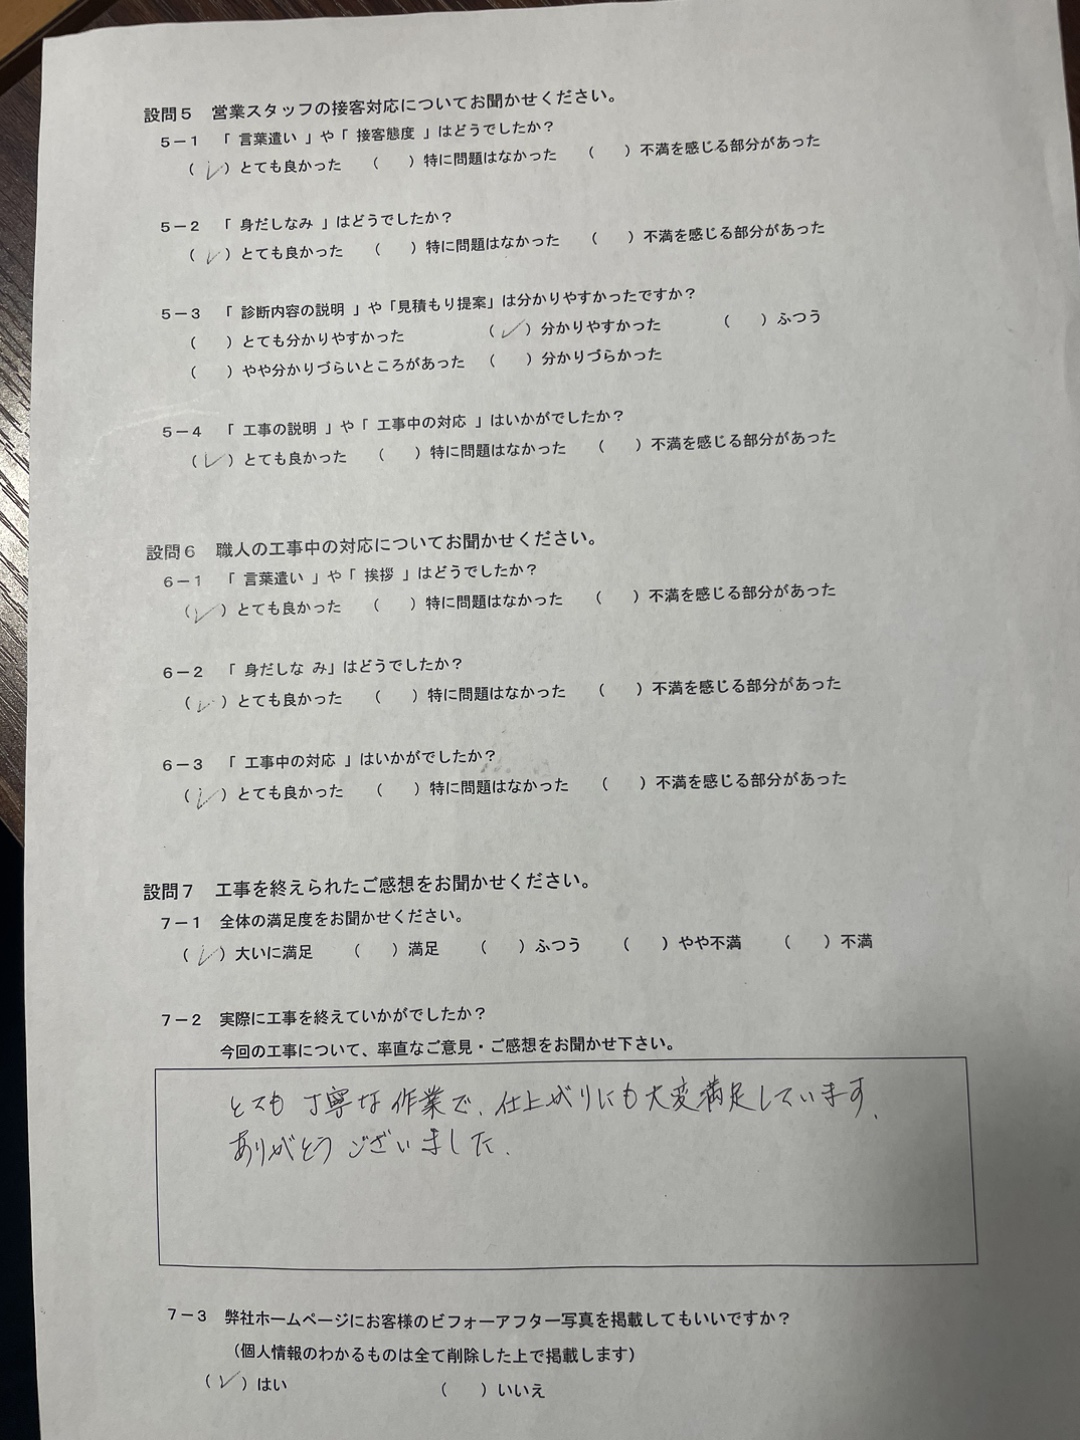 設問5　営業スタッフの接客対応についてお聞かせください。
5－1　「 言葉遣い 」や「 接客態度 」はどうでしたか？
（ ✓ ）とても良かった　（　　）特に問題はなかった　（　　）不満を感じる部分があった
5－2　「 身だしなみ 」はどうでしたか？
（ ✓ ）とても良かった　（　　）特に問題はなかった　（　　）不満を感じる部分があった
5－3　「 診断内容の説明 」や「見積もり提案」は分かりやすかったですか？
（　　）とても分かりやすかった　（ ✓ ）分かりやすかった　（　　）ふつう
（　　）やや分かりづらいところがあった　（　　）分かりづらかった
5－4　「 工事の説明 」や「 工事中の対応 」はいかがでしたか？
（ ✓ ）とても良かった　（　　）特に問題はなかった　（　　）不満を感じる部分があった
設問6　職人の工事中の対応についてお聞かせください。
6－1　「 言葉遣い 」や「 挨拶 」はどうでしたか？
（ ✓ ）とても良かった　（　　）特に問題はなかった　（　　）不満を感じる部分があった
6－2　「 身だしな み」はどうでしたか？
（ ✓ ）とても良かった　（　　）特に問題はなかった　（　　）不満を感じる部分があった
6－3　「 工事中の対応 」はいかがでしたか？
（ ✓ ）とても良かった　（　　）特に問題はなかった　（　　）不満を感じる部分があった
設問7　工事を終えられたご感想をお聞かせください。
7－1　全体の満足度をお聞かせください。
（ ✓ ）大いに満足　（　　）満足　（　　）ふつう　（　　）やや不満　（　　）不満
7－2　実際に工事を終えていかがでしたか？
今回の工事について、率直なご意見・ご感想をお聞かせ下さい。
とても丁寧な作業で、仕上がりにも大変満足しています、
ありがとうございました、
7－3　弊社ホームページにお客様のビフォーアフター写真を掲載してもいいですか？
（個人情報のわかるものは全て削除した上で掲載します）
（ ✓ ）はい　（　　）いいえ